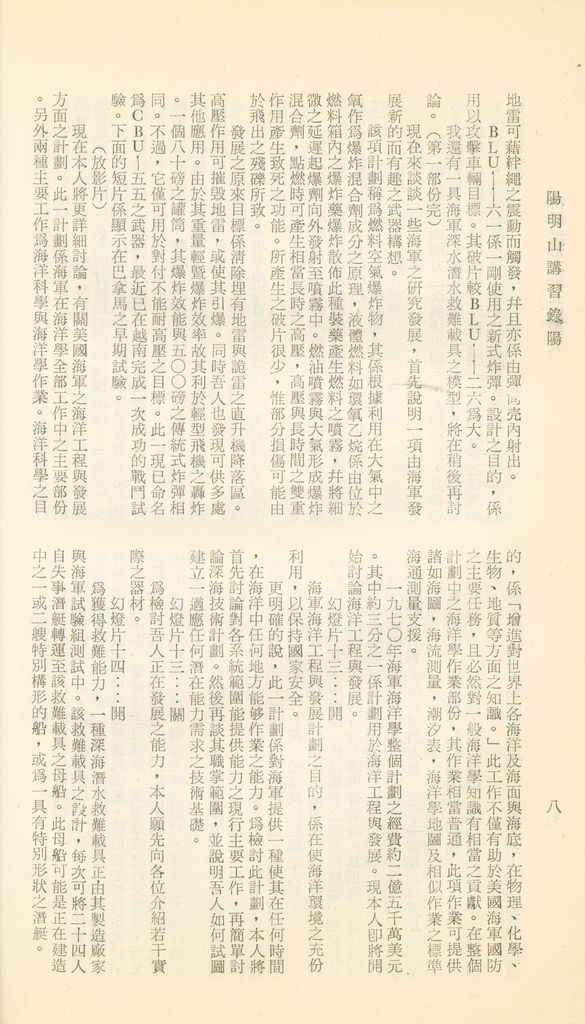 陽明山講習錄陽
八
地雷可藉絆繩之震動而觸發，幷且亦係由彈筒壳內射出。
BLU—一六一係一剛使用之新式炸彈。設計之目的，係
用以攻擊車輛目標。其破片較BLU—一二六爲大。
我還有一具海軍深水潛水救難載具之模型，將在稍後再討
論。（第一部份完）
現在來談談一些海軍之硏究發展，首先說明一項由海軍發
展新的而有趣之武器構想。
該項計劃稱爲燃料空氣爆炸物，其係根據利用在大氣中之
氧作爲爆炸混合劑成分之原理，液體燃料如環氧乙烷係由位於
燃料箱內之爆炸藥爆炸散佈此種裝藥產生燃料之噴霧，幷將細
微之延遲起爆劑向外發射至噴霧中。燃油噴霧與大氣形成爆炸
混合劑，點燃時可產生相當長時之高壓，高壓與長時間之雙重
作用產生致死之功能。所產生之破片很少，惟部分損傷可能由
於飛出之殘礫所致。
發展之原來目標係淸除埋有地雷與詭雷之直升機降落區。
高壓作用可摧毀地雷，或使其引爆。同時吾人也發現可供多處
其他應用。由於其重量輕曁爆炸效率故其利於輕型飛機之轟炸
。一個八十磅之罐筒，其爆炸效能與五〇〇磅之傳統式炸彈相
同。不過，它僅可用於對付不能耐高壓之目標。此一現已命名
爲CBU—五五之武器，最近已在越南完成一次成功的戰鬥試
驗。下面的短片係顯示在巴拿馬之早期試驗。
（放影片）
現在本人將更詳細討論，有關美國海軍之海洋工程與發展
方面之計劃。此一計劃係海軍在海洋學全部工作中之主要部份
。另外兩種主要工作爲海洋科學與海洋學作業。海洋科學之目
的，係「增進對世界上各海洋及海面與海底，在物理、化學、
生物、地質等方面之知識。」此工作不僅有助於美國海軍國防
之主要任務，且必然對一般海洋學知識有相當之貢獻。在整個
計劃中之海洋學作業部份，其作業相當普通，此項作業可提供
諸如海圖，海流測量，潮汐表，海洋學地圖及相似作業之標準
海通測量支援。
一九七〇年海軍海洋學整個計劃之經費約二億五千萬美元
。其中約三分之一係計劃用於海洋工程與發展。現本人卽將開
始討論海洋工程與發展。
幻燈片十三：：開
海軍海洋工程與發展計劃之目的，係在使海洋環境之充份
利用，以保持國家安全。
更明確的說，此一計劃係對海軍提供一種使其在任何時間
，在海洋中任何地方能够作業之能力。爲檢討此計劃，本人將
首先討論對各系統範圍能提供能力之現行主要工作，再簡單討
論深海技術計劃。然後再談其職掌範圍，並說明吾人如何試圖
建立一適應任何潛在能力需求之技術基礎。
幻燈片十三：：關
爲檢討吾人正在發展之能力，本人願先向各位介紹若干實
際之器材。
幻燈片十四：：開
爲獲得救難能力，一種深海潛水救難載具正由其製造廠家
與海軍試驗組測試中。該救難載具之設計，每次可將二十四人
自失事潛艇轉運至該救難載具之母船。此母船可能是正在建造
中之一或二艘特別構形的船，或爲一具有特別形狀之潛艇。